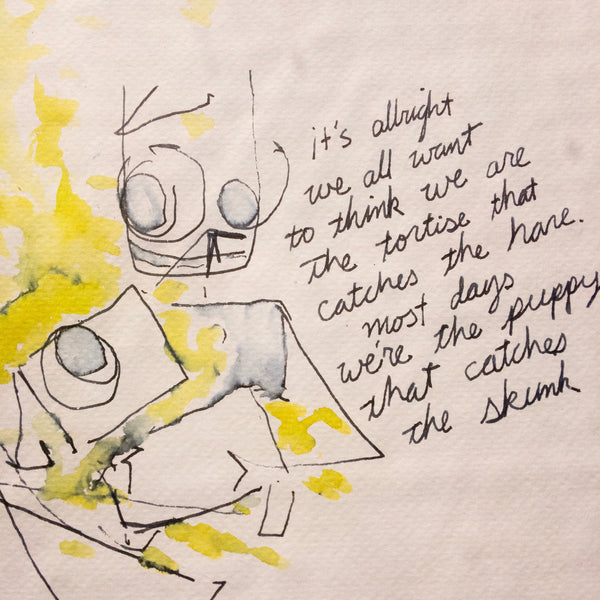 it's allright
we all want
to think we are
the tortise that
catches the hare.
most days
we're the puppy
that catches
the skunk